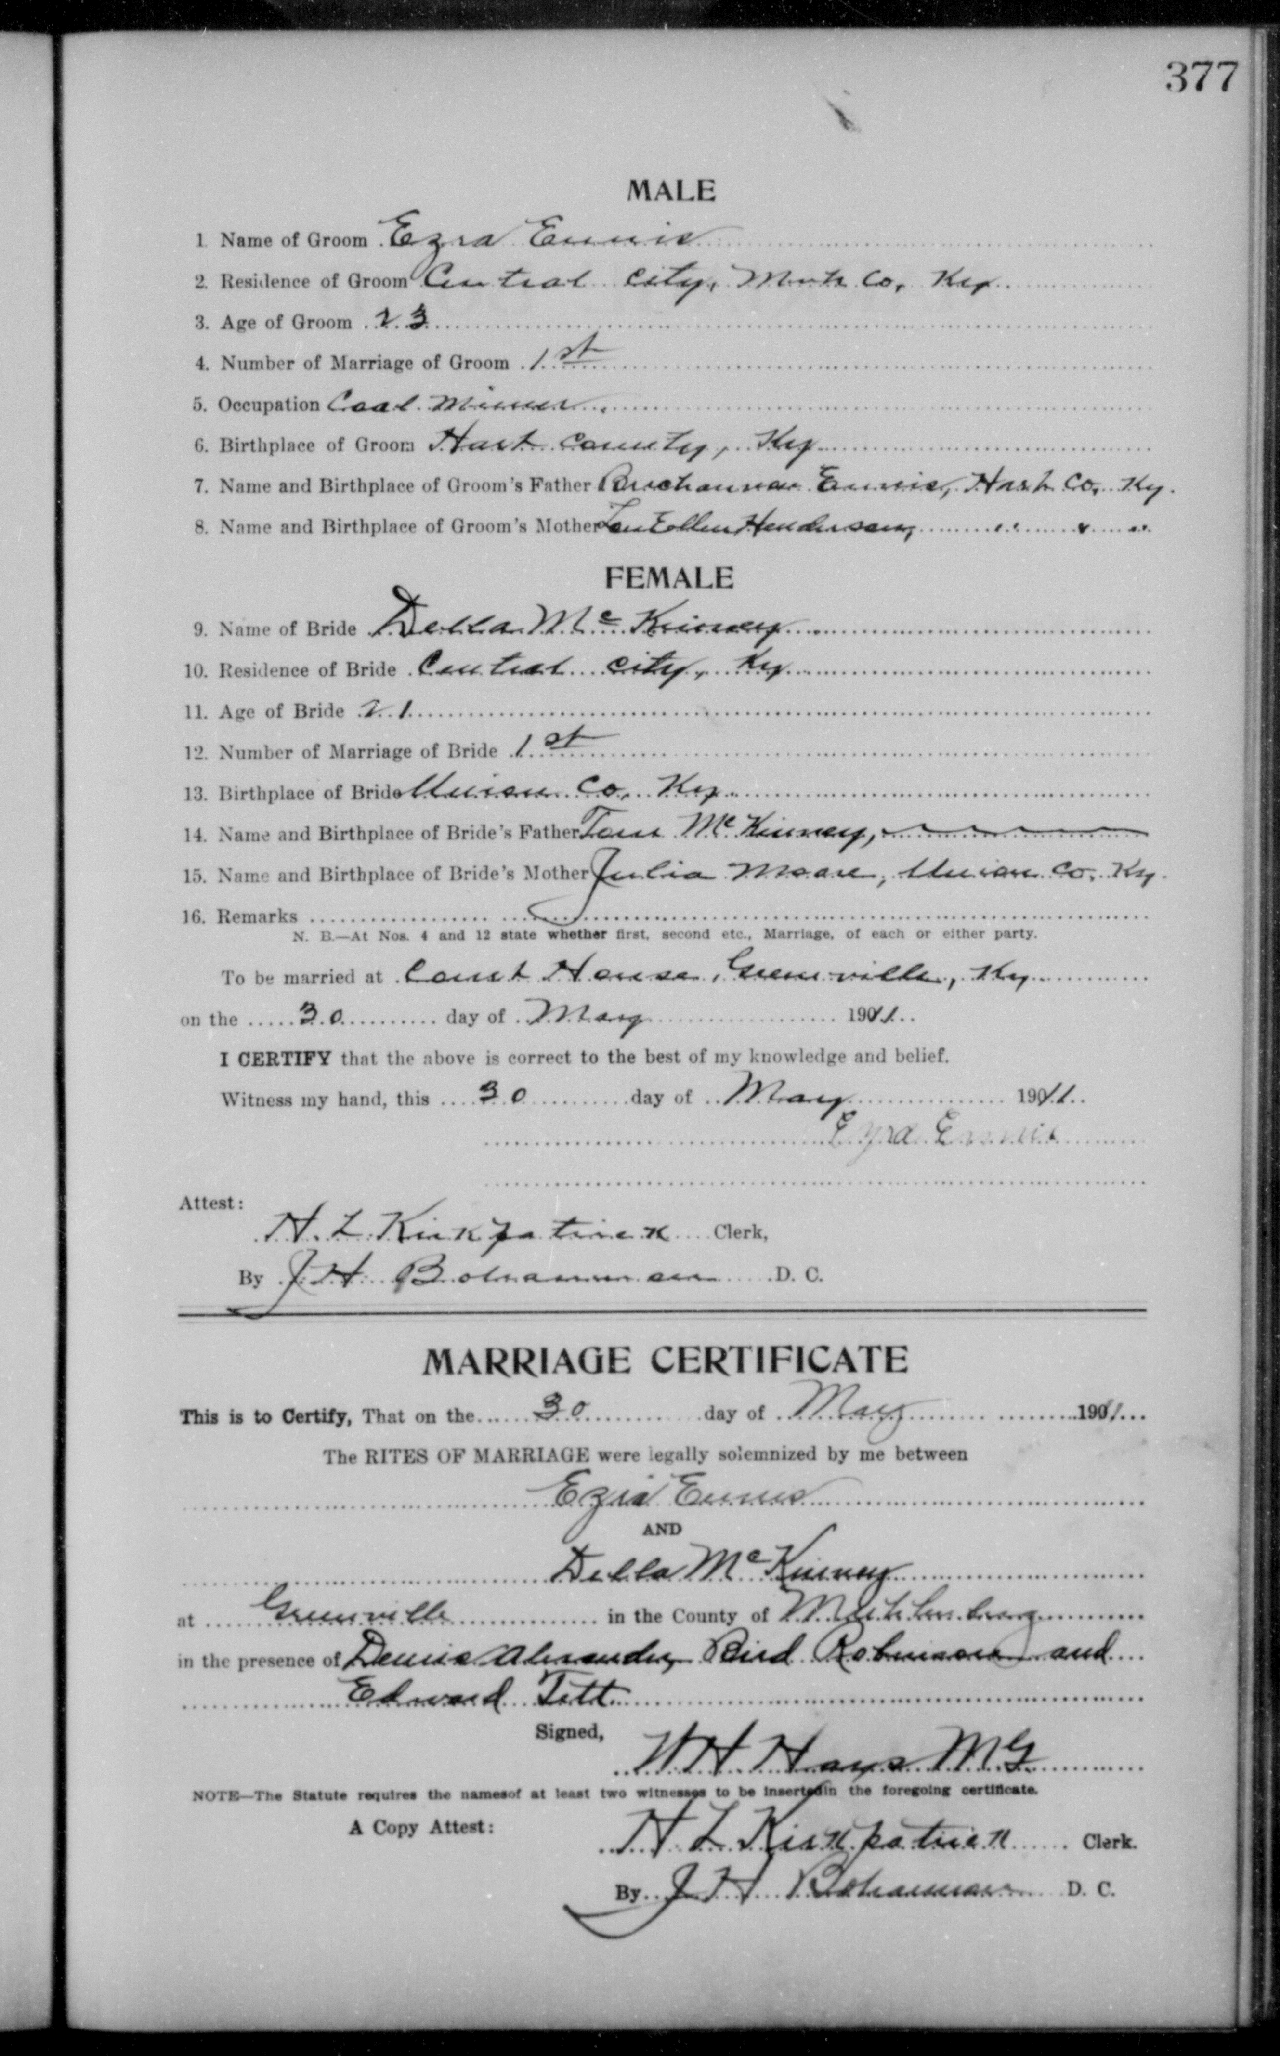 377
MALE
1. Name of Groom Ezra Ennis
2. Residence of Groom Central City, Muh Co, Ky
3. Age of Groom 23
4. Number of Marriage of Groom 1st
5. Occupation Coal Miner
6. Birthplace of Groom Hart County, Ky
7. Name and Birthplace of Groom's Father Buchannan Ennis, Hart Co, Ky.
8. Name and Birthplace of Groom's Mother Lou Ellen Henderson, " " "
FEMALE
9. Name of Bride Della McKinney
10. Residence of Bride Central City, Ky
11. Age of Bride 21
12. Number of Marriage of Bride 1st
13. Birthplace of Bride Union Co, Ky
14. Name and Birthplace of Bride's Father Tom McKinney,
15. Name and Birthplace of Bride's Mother Julia Moore, Union Co, Ky.
16. Remarks
N. B.—At Nos. 4 and 12 state whether first, second etc., Marriage, of each or either party.
To be married at Court House, Greenville, Ky
on the 30 day of May 1911
I CERTIFY that the above is correct to the best of my knowledge and belief.
Witness my hand, this 30 day of May 1911
Ezra Ennis
Attest:
H. L. Kirkpatrick Clerk,
By J H Bohannon D. C.
MARRIAGE CERTIFICATE
This is to Certify, That on the 30 day of May 1911
The RITES OF MARRIAGE were legally solemnized by me between
Ezra Ennis
AND
Della McKinney
at Greenville in the County of Muhlenberg
in the presence of Dennis Alexander, Bird Robinson and
Edward Titt
Signed,
W H Hays M G
NOTE—The Statute requires the namesof at least two witnesses to be insertedin the foregoing certificate.
A Copy Attest:
H L Kirkpatrick Clerk.
By J H Bohannon D. C.